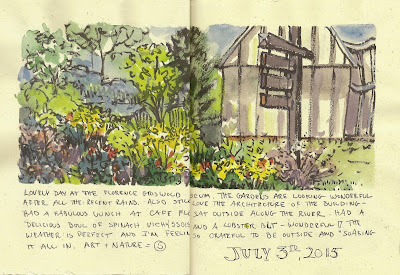 LOVELY DAY AT THE FLORENCE GRISWOLD SEUM. THE GARDENS ARE LOOKING WONDERFUL
AFTER ALL THE RECENT RAINS. ALSO STILL LOVE THE ARCHITECTURE OF THE BUILDING -
HAD A FABULOUS LUNCH AT CAFE FLO SAT OUTSIDE ALONG THE RIVER. HAD A
DELICIOUS BOWL OF SPINACH VICHYSSOIS AND A LOBSTER BLT - WONDERFUL!! THE
WEATHER IS PERFECT AND I'M FEELIN SO GRATEFUL TO BE OUTSIDE AND "SOAKING
IT ALL IN. ART + NATURE =
JULY 3RD, 2015